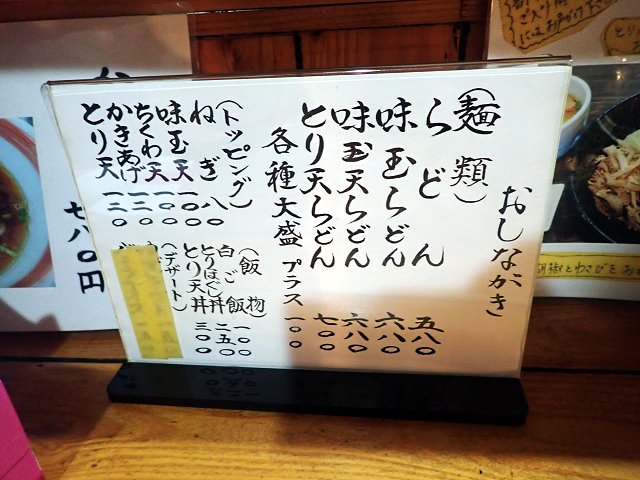 おしながき
(麺類)
らどん 五八〇
味玉らどん 六八〇
味玉天らどん 六八〇
とり天らどん 七〇〇
各種大盛 プラス 一〇〇
(トッピング)
ねぎ 八〇
味玉天 一〇〇
ちくわ天 一二〇
かきあげ 一二〇
とり天 一三〇
(飯物)
白ご飯 一〇〇
とりほぐし丼 二五〇
とり天丼 三〇〇
(デザート)
七八〇円
胡椒とわさびをお